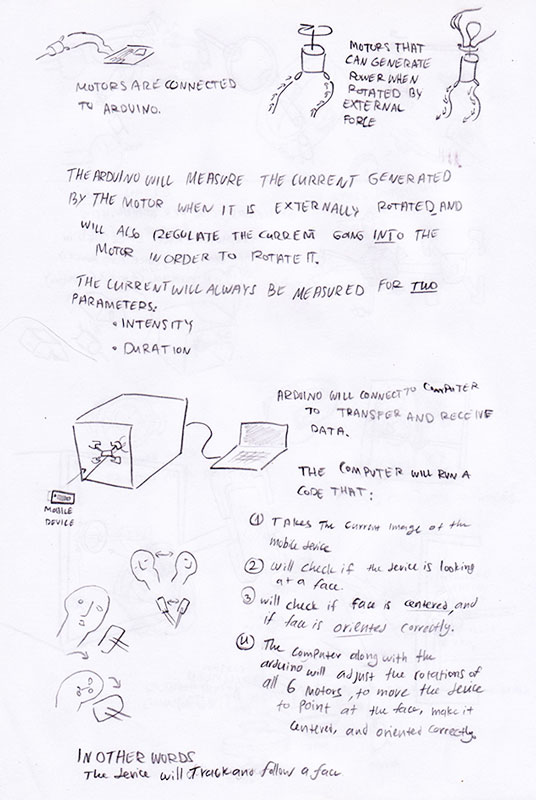 MOTORS ARE CONNECTED
TO ARDUINO.
MOTORS THAT
CAN GENERATE
POWER WHEN
ROTATED BY
EXTERNAL
FORCE
THE ARDUINO WILL MEASURE THE CURRENT GENERATED
BY THE MOTOR WHEN IT IS EXTERNALLY ROTATED, AND
WILL ALSO REGULATE THE CURRENT GOING INTO THE
MOTOR IN ORDER TO ROTATE IT.
THE CURRENT WILL ALWAYS BE MEASURED FOR TWO
PARAMETERS:
• INTENSITY
• DURATION
ARDUINO WILL CONNECT TO COMPUTER
TO TRANSFER AND RECEIVE
DATA.
MOBILE
DEVICE
THE COMPUTER WILL RUN A
CODE THAT:
① TAKES The current image of the
mobile device
② will check if the device is looking
at a face.
③ will check if face is centered, and
if face is oriented correctly.
④ The computer along with the
arduino will adjust the rotations of
all 6 motors, to move the device
to point at the face, make it
centered, and oriented correctly.
IN OTHER WORDS
The device will Track and follow a face